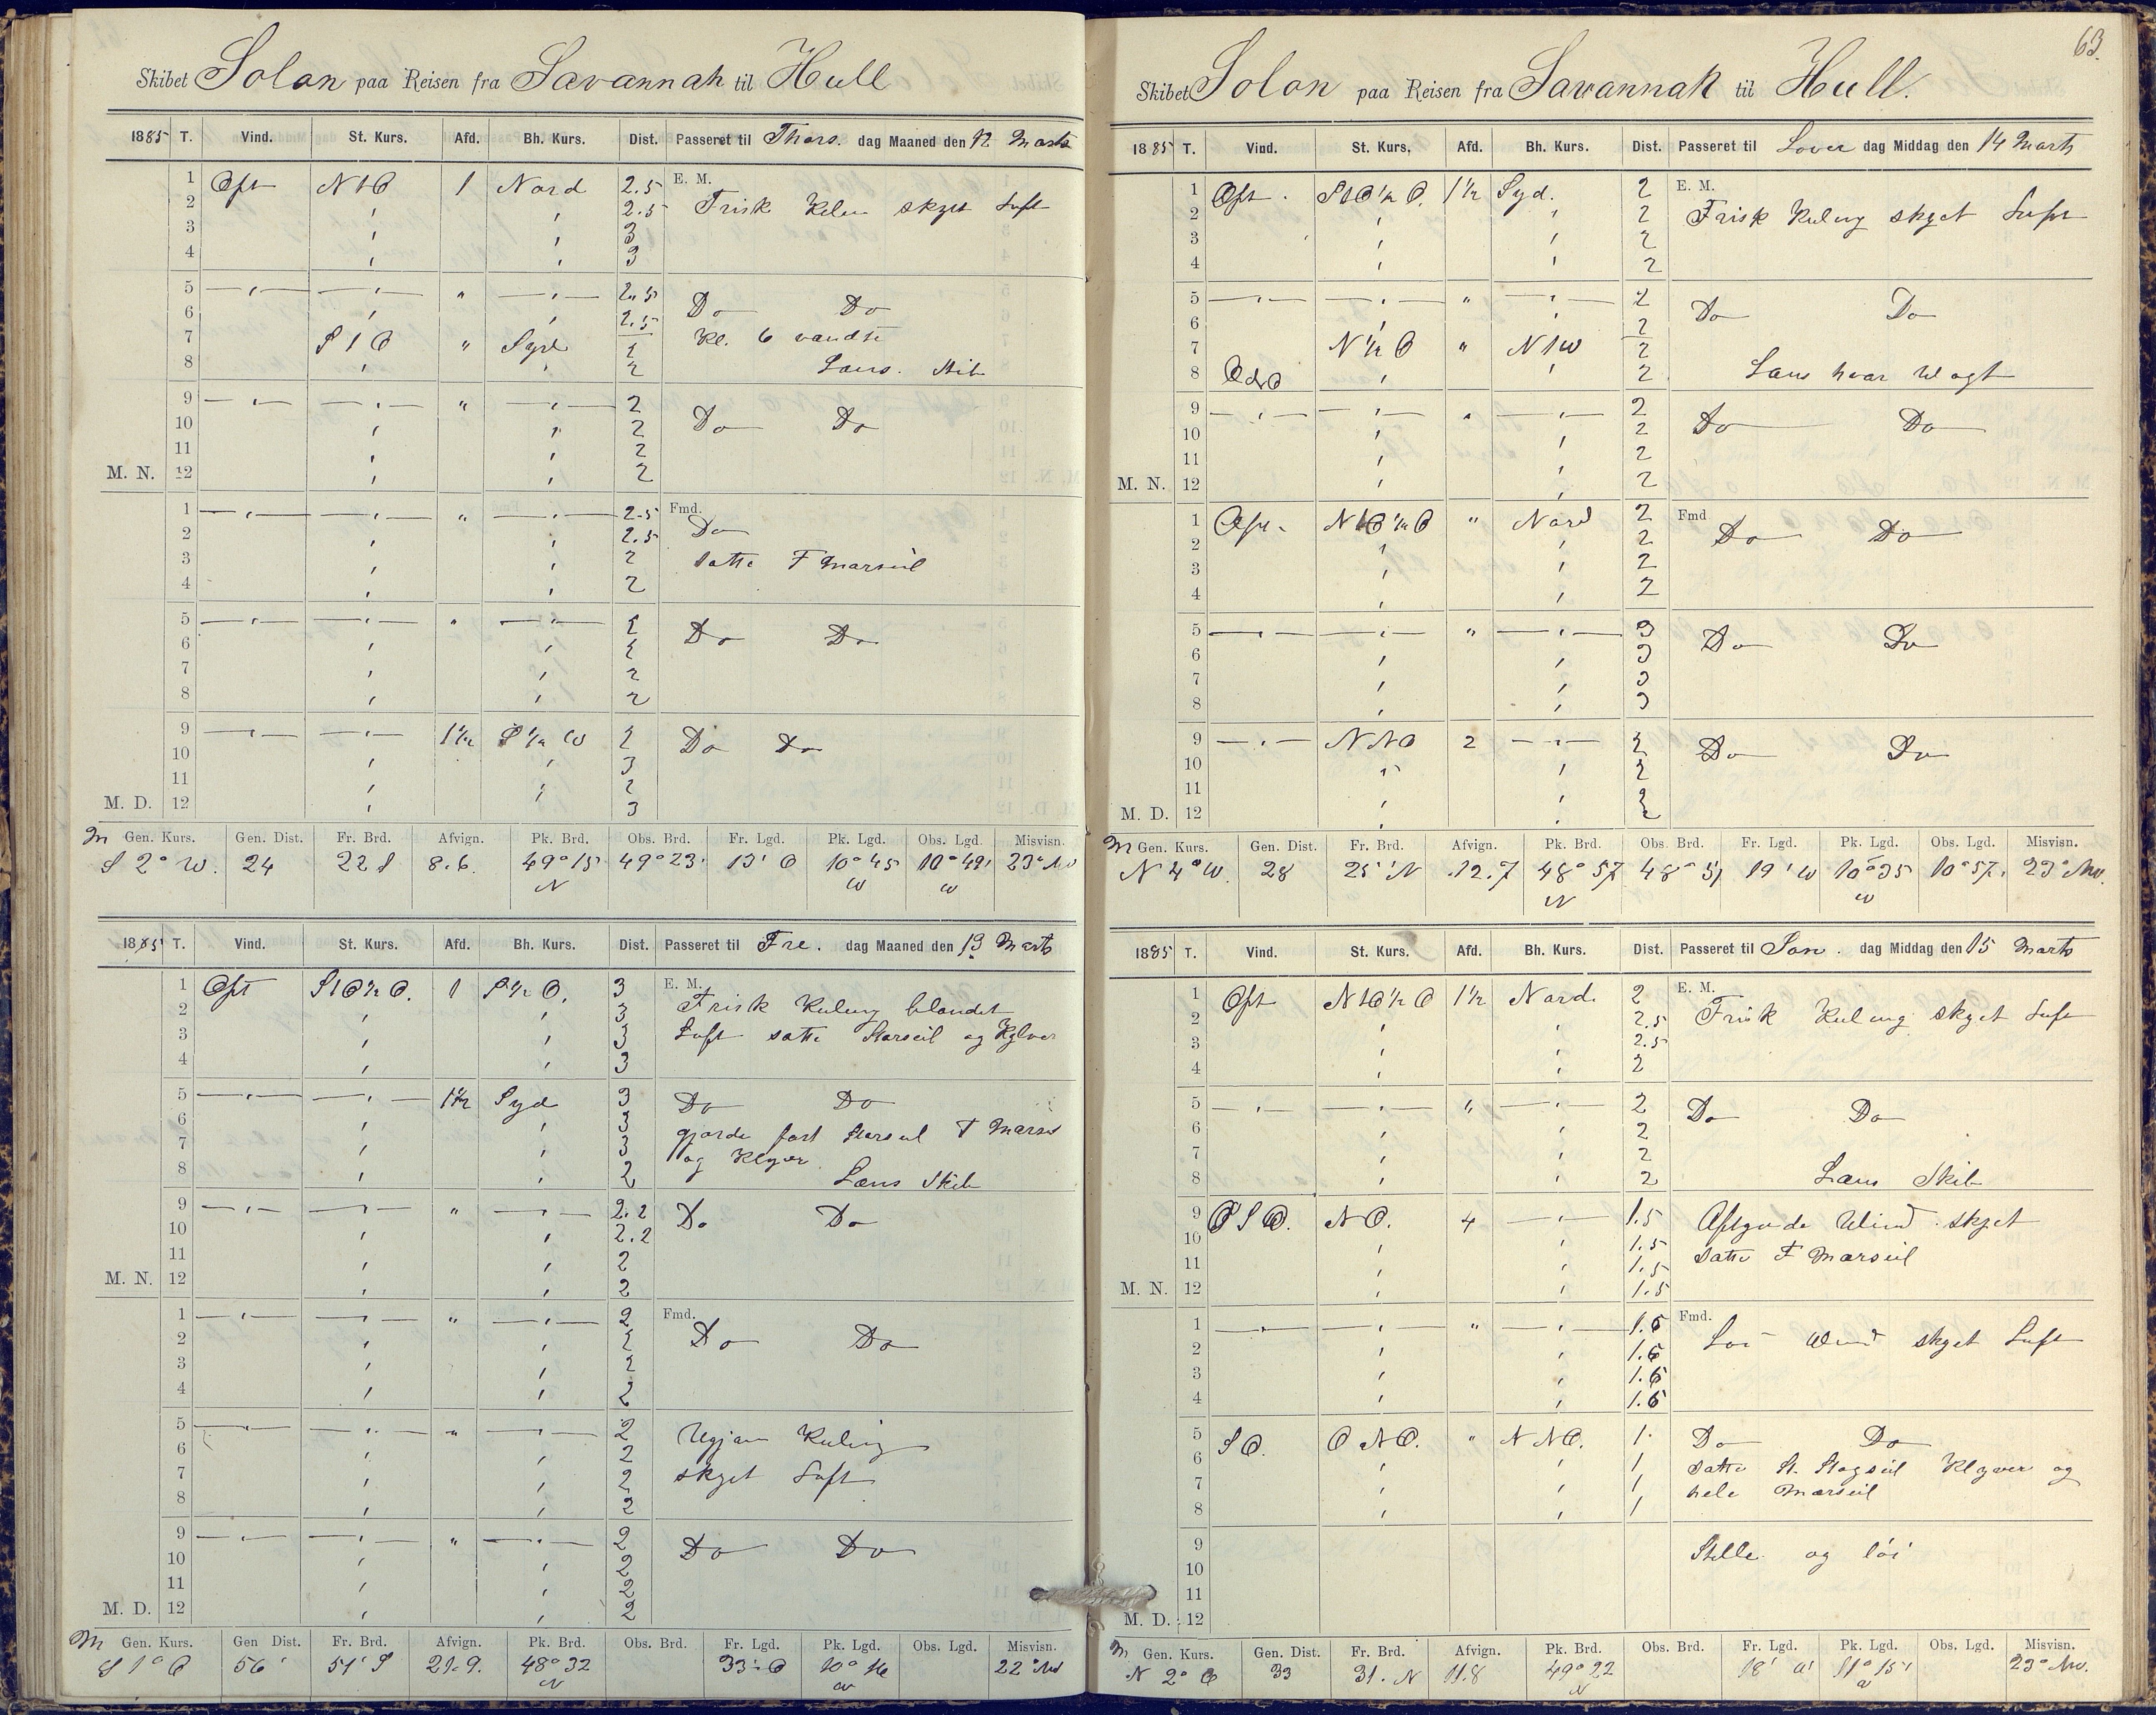 Skibet Solon paa Reisen fra Savannah til Hull
1885 T. Vind. St. Kurs. Afd. Bh. Kurs. Dist. Passeret til Thors. dag Maaned den 12 Marts
1 Ost N t O 1 Nord 2.5 E. M.
2 " " 2.5 Frisk Kuling skyet Luft
3 " " 3
4 " " 3
5 —"— —"— " —"— 2.5
6 " " 2.5 Do Do
7 S t O " Syd 2 Kl. 6 vendte
8 " " 2 Læns. Skib
9 —"— —"— " —"— 2
10 " " 2 Do Do
11 " " 2
M. N. 12 " " 2
1 —"— —"— " —"— 2.5 Fmd.
2 " " 2.5 Do
3 " " 2 satte F Marseil
4 " " 2
5 —"— —"— " —"— 2
6 " " 2 Do Do
7 " " 2
8 " " 2
9 —"— —"— 1½ S ½ W 2 Do Do
10 " " 3
11 " " 2
M. D. 12 " 3
M Gen. Kurs. Gen. Dist. Fr. Brd. Afvign. Pk. Brd. Obs. Brd. Fr. Lgd. Pk. Lgd. Obs. Lgd. Misvisn.
S 2° W. 24 22 S 8.6. 49° 15 N 49° 23' 13' O 10° 45 W 10° 49' W 23° NW
1885 T. Vind. St. Kurs. Afd. Bh. Kurs. Dist. Passeret til Fre. dag Maaned den 13 Marts
1 Ost S t O ½ O. 1 S ½ O. 3 E. M.
2 " " 3 Frisk Kuling blandet
3 " " 3 Luft satte Storseil og Klyver
4 " " 3
5 —"— —"— 1½ Syd 3 Do Do
6 " " 3 gjorde fast Storseil F Marseil
7 " " 3 og Klyver
8 " " 2 Læns Skib
9 —"— —"— " —"— 2.2 Do Do
10 " " 2.2
11 " " 2
M. N. 12 " " 2
1 —"— —"— " —"— 2 Fmd.
2 " " 2 Do Do
3 " " 2
4 " " 2
5 —"— —"— " —"— 2 Ugjævn Kuling
6 " " 2
7 " " 2 skyet Luft
8 " " 2
9 —"— —"— " —"— 2 Do Do
10 " " 2
11 " " 2
M. D. 12 " " 2
M Gen. Kurs. Gen Dist. Fr. Brd. Afvign. Pk. Brd. Obs. Brd. Fr. Lgd. Pk. Lgd. Obs. Lgd. Misvisn.
S 1° O 56' 51' S 21.9. 48° 32 N 33' O 10° 16 W 22° NW
63.
Skibet Solon paa Reisen fra Savannah til Hull.
1885 T. Vind. St. Kurs. Afd. Bh. Kurs. Dist. Passeret til Lover dag Middag den 14 Marts
1 Ost. S t O ½ O. 1½ Syd. 2 E. M.
2 " " 2 Frisk Kuling skyet Luft
3 " " 2
4 " " 2
5 —"— —"— " —"— 2
6 " 2 Do Do
7 N ½ O " N t W 2
8 " " 2 Læns hver Wagt
9 —"— —"— " 2
10 " " 2 Do Do
11 " " 2
M. N. 12 " " 2
1 Ost. N t O ½ O " Nord 2 Fmd
2 " " 2 Do Do
3 " " 2
4 " " 2
5 —"— —"— " —"— 3
6 " " 3 Do Do
7 " " 3
8 " " 3
9 —"— N N O 2 —"— 2
10 " " 2 Do Do
11 2
M. D. 12 " " 2
M Gen. Kurs. Gen. Dist. Fr. Brd. Afvign. Pk. Brd. Obs. Brd. Fr. Lgd. Pk. Lgd. Obs. Lgd. Misvisn.
N 4° W. 28 25' N 12.7 48° 57 N 48° 51 19' W 10° 35 W 10° 57' 23° NW.
1885 T. Vind. St. Kurs. Afd. Bh. Kurs. Dist. Passeret til Søn. dag Middag den 15 Marts
1 Ost N t O ½ O 1½ Nord. 2 E. M.
2 " " 2.5 Frisk Kuling skyet Luft
3 " " 2.5
4 " " 2
5 —"— —"— " —"— 2
6 " " 2 Do Do
7 " " 2
8 " " 2 Læns Skib
9 O S O. N O. 4 —"— 1.5 Aftagende Wind skyet
10 " " 1.5
11 " " 1.5 satte F Marseil
M. N. 12 " " 1.5
1 —"— —"— " —"— 1.5 Fmd.
2 " " 1.5 Løi Wind skyet Luft
3 " " 1.5
4 " " 1.5
5 S O. O N O. " N N O. 1 Do Do
6 " " 1 satte St. Stagseil Klyver og
7 " " 1 hele Mærseil
8 " " 1
9 Stille og løi
10
11
M. D. 12
M Gen. Kurs. Gen. Dist. Fr. Brd. Afvign. Pk. Brd. Obs. Brd. Fr. Lgd. Pk. Lgd. Obs. Lgd. Misvisn.
N 2° O 33 31. N 11.8 49° 22 N 18' W 11° 15' W 23° NW.